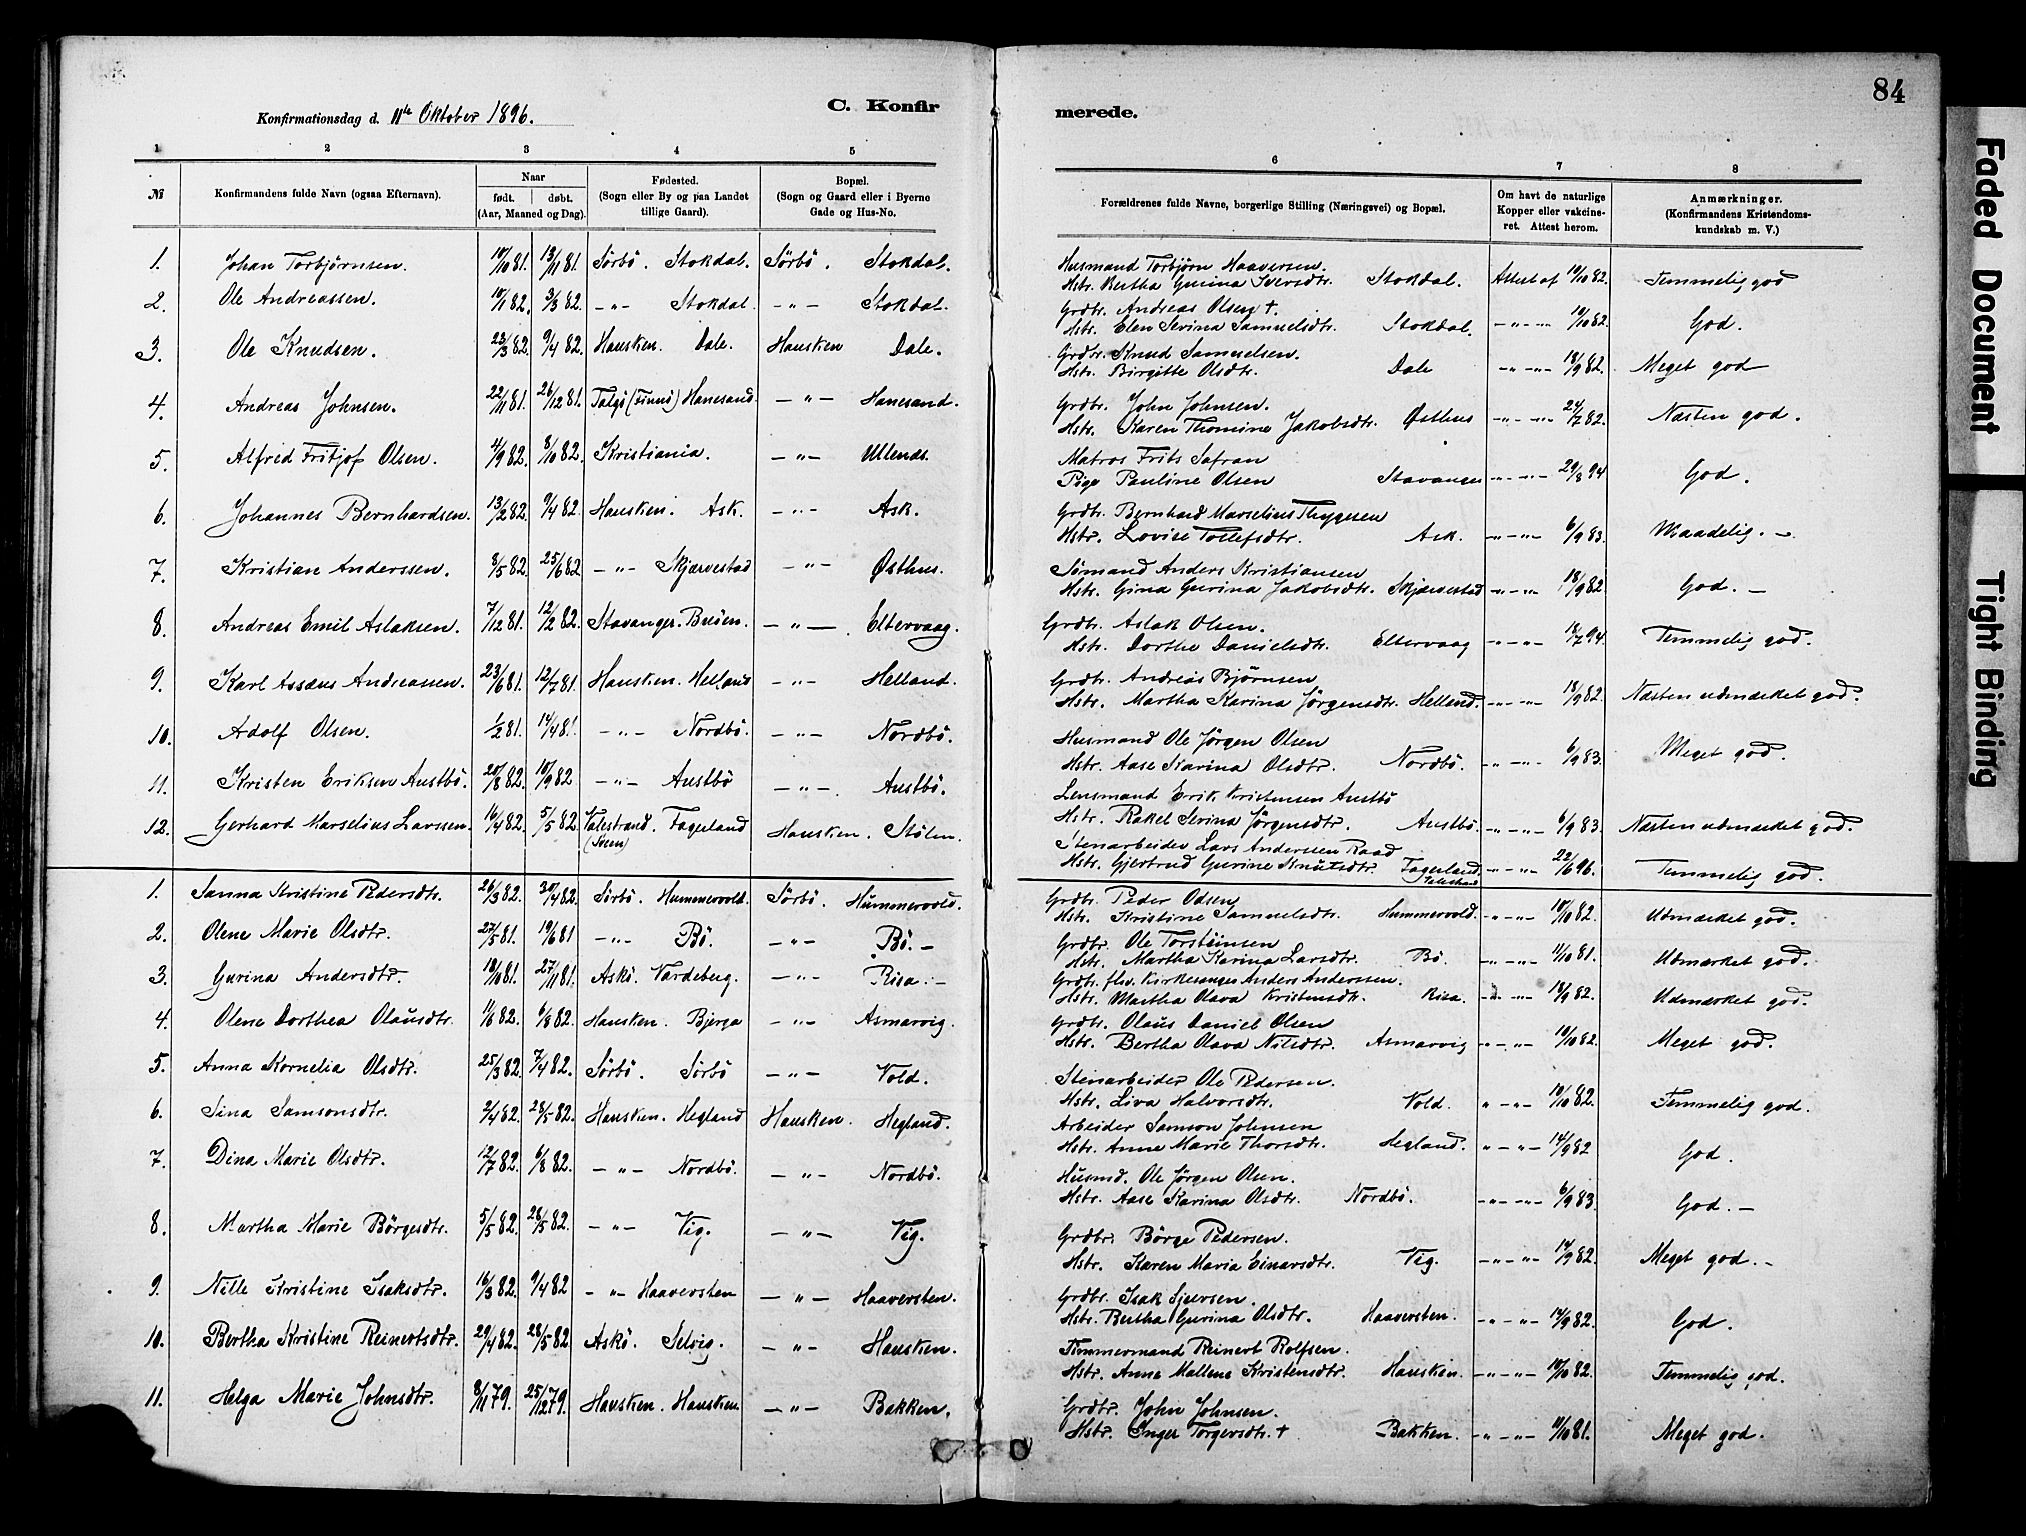 Konfirmationsdag d. 11te Oktober 1896.
C. Konfirmerede.
84
1 2 3 4 5 6 7 8
№ Konfirmandens fulde Navn (ogsaa Efternavn). Naar født. døbt. (Aar, Maaned og Dag). Fødested. (Sogn eller By og paa Landet tillige Gaard). Bopæl. (Sogn og Gaard eller i Byerne Gade og Hus-No. Forældrenes fulde Navne, borgerlige Stilling (Næringsvei) og Bopæl. Om havt de naturlige Kopper eller vakcineret. Attest herom. Anmærkninger. (Konfirmandens Kristendomskundskab m. V.)
1. Johan Torbjörnsen. 10/10 81. 13/11 81. Sörbö. Stokdal. Sörbö. Stokdal. Husmand Torbjörn Haaversen.
Hstr. Bertha Gurina Sversdtr. Stokdal. Attest af 10/10 82. Temmelig god
2. Ole Andreassen. 10/1 82. 3/3 82. -"- Stokdal -"- Stokdal. Grdbr. Andreas Olsen †.
Hstr. Elen Serina Samuelsdtr. Stokdal. -"- -"- 10/10 82. God.
3. Ole Knudsen. 23/3 82. 9/4 82. Hausken. Dale. Hausken Dale. Grdbr. Knud Samuelsen.
Hstr. Birgitte Olsdtr. Dale -"- -"- 18/9 82. Meget god
4. Andreas Johnsen. 22/11 81. 26/12 81. Talgö (Finnö) Hanesand -"- Hanesand. Grdbr. John Johnsen.
Hstr. Karen Thomine Jakobsdtr. Østhus -"- -"- 24/7 82. Næsten god.
5. Alfred Fritjof Olsen. 4/9 82. 8/10 82. Kristiania. -"- Ullenes. Matros Frits Safran
Pige Pauline Olsen Stavanger -"- -"- 29/8 94 God.
6. Johannes Bernhardsen. 13/2 82. 9/4 82. Hausken. Ask. -"- Ask. Grdbr. Bernhard Marselius Thygesen
Hstr. Lovise Tollefsdtr. Ask. -"- -"- 6/9 83. Maadelig. -
7. Kristian Anderssen. 8/5 82. 25/6 82 -"- Skjærvestad -"- Østhus. Sömand Anders Kristiansen
Hstr. Gina Gurina Jakobsdtr. Skjærvestad -"- -"- 18/9 82. God. -
8. Andreas Emil Aslaksen. 7/12 81. 12/2 82. Stavanger. -"- Eltervaag. Grdbr. Aslak Olsen.
Hstr. Dorthe Danielsdtr. Eltervaag -"- -"- 18/7 94. Temmelig god.
9. Karl Assæus Andreassen. 23/6 81. 12/7 81. Hausken. Helland -"- Helland. Grdbr. Andreas Björnsen
Hstr. Martha Karina Jörgensdtr. Helland. -"- -"- 18/9 82. Næsten udmærket god.
10. Adolf Olsen. 1/2 81. 14/4 81. -"- Nordbö. -"- Nordbö. Husmand Ole Jörgen Olsen
Hstr. Aase Karina Olsdtr. Nordbö. -"- -"- 6/9 83. Meget god.
11. Kristen Eriksen Austbö. 20/8 82. 10/9 82 -"- Austbö -"- Austbö. Lensmand Erik Kristensen Austbö
Hstr. Rakel Serina Jörgensdtr. Austbö. -"- -"- 6/9 83. Næsten udmærket god.
12. Gerhard Marselius Larssen. 16/4 82. 5/5 82. Valestrand. Fagerland (Sveen) Hausken. Stölen. Stenarbeider Lars Anderssen Raad
Hstr. Gjertrud Gurine Knutsdtr. Fagerland. Valestrand -"- -"- 22/6 96. Temmelig god.
1. Sanna Kristine Pedersdtr. 26/3 82. 30/4 82. Sörbö. Hummervold. Sörbö. Hummervold. Grdbr. Peder Odsen
Hstr. Kristine Samuelsdtr. Hummervold. -"- -"- 10/10 82. Udmærket god.
2. Olene Marie Olsdtr. 27/5 81. 19/6 81 -"- Bö. -"- Bö. - Grdbr. Ole Torsteinsen
Hstr. Martha Karina Larsdtr. Bö. -"- -"- 11/10 81. Udmærket god.
3. Gurina Andersdtr. 18/10 81. 27/11 81. Askö. Vardeberg. -"- Risa. - Grdbr. fhv. Kirkesanger Anders Anderssen.
Hstr. Martha Olava Kristensdtr. Risa. -"- -"- 18/9 82. Udmærket god.
4. Olene Dorthea Olausdtr. 11/6 82. 6/8 82. Hausken. Bjerga -"- Asmarvig. Grdbr. Olaus Daniel Olsen
Hstr. Bertha Olava Nilsdtr. Asmarvig -"- -"- 10/10 82. Meget god.
5. Anna Kornelia Olsdtr. 25/3 82. 7/4 82. Sörbö. Sörbö -"- Vold. Stenarbeider Ole Pedersen.
Hstr. Liva Halvorsdtr. Vold. " -"- 10/10 82. Temmelig god.
6. Sina Samsonsdtr. 2/4 82. 28/5 82. Hausken. Hegland Hausken. Hegland. Arbeider Samson Johnsen
Hstr. Anne Marie Thorsdtr. Hegland. " -"- 14/9 82 God.
7. Dina Marie Olsdtr. 12/7 82. 6/8 82. -"- Nordbö. -"- Nordbö. Husmd. Ole Jörgen Olsen.
Hstr. Aase Karina Olsdtr. Nordbö. -"- -"- 6/9 83. God. -
8. Martha Marie Börgesdtr. 5/5 82. 28/5 82. -"- Vig. -"- Vig. Grdbr. Börge Pedersen.
Hstr. Karen Maria Einarsdtr. Vig. -"- -"- 14/9 82. Meget god. -
9. Nille Kristine Isaksdtr. 16/3 82. 9/4 82 -"- Haaversten -"- Haaversten. Grdbr. Isak Sjursen.
Hstr. Bertha Gurina Olsdtr. Haaversten. -"- -"- 14/9 82. God.
10. Bertha Kristine Reinertsdtr. 29/4 82. 28/5 82. Askö. Selvig. -"- Hausken. Tömmermand Reinert Rolfsen.
Hstr. Anne Mallene Kristensdtr. Hausken. -"- -"- 10/10 82. Temmelig god.
11. Helga Marie Johnsdtr. 8/11 79. 25/12 79. Hausken. Hausken. -"- Bakken. Grdbr. John Johnsen.
Hstr. Inger Torgersdtr. † Bakken. -"- -"- 11/10 81. Meget god.
Faded Document
Tight Binding